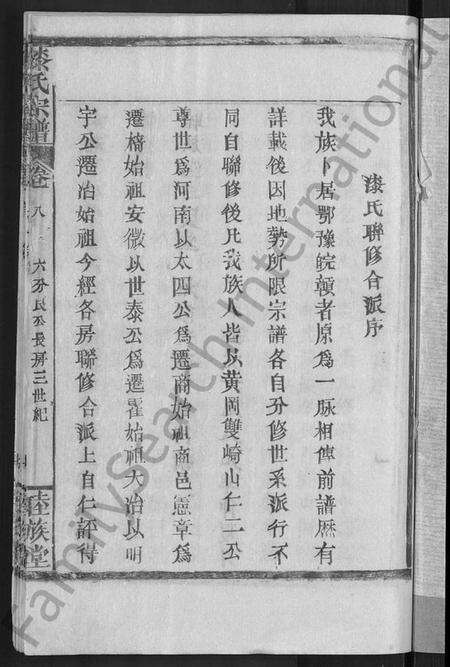 漆氏聯修合派序
我族卜居鄂豫皖贛者原爲一脉相傳前譜歷有
詳載後因地勢所限宗譜各自分修世系派行不
同自聯修後凡我族人皆以黄岡雙崎山仁二公
尊世爲河南以太四公爲遷商始祖商邑憲章爲
遷檣始祖安徽以世泰公爲遷霍始祖大冶以明
宇公遷冶始祖今經各房聯修合派上自仁評得
漆氏宗譜
卷八
六分長公長房三世紀
睦族堂
FamilySearch International